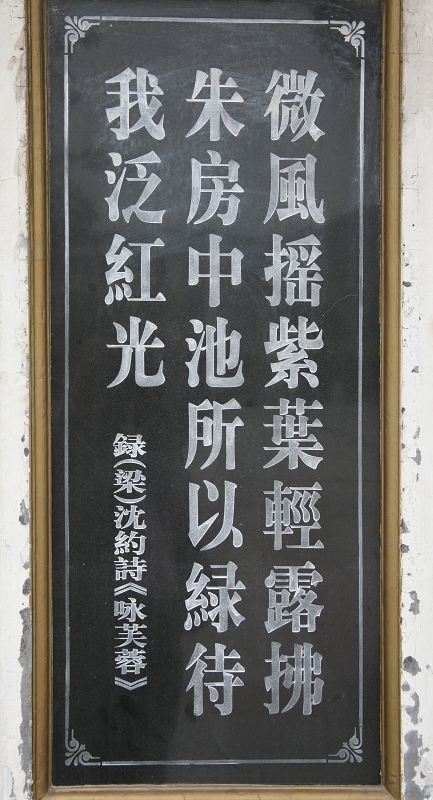 微風摇紫葉輕露拂
朱房中池所以緑待
我泛紅光
録(梁)沈約詩《咏芙蓉》